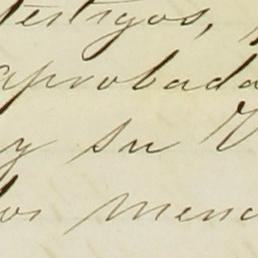 testigos,
aprobada
y su V
los menc